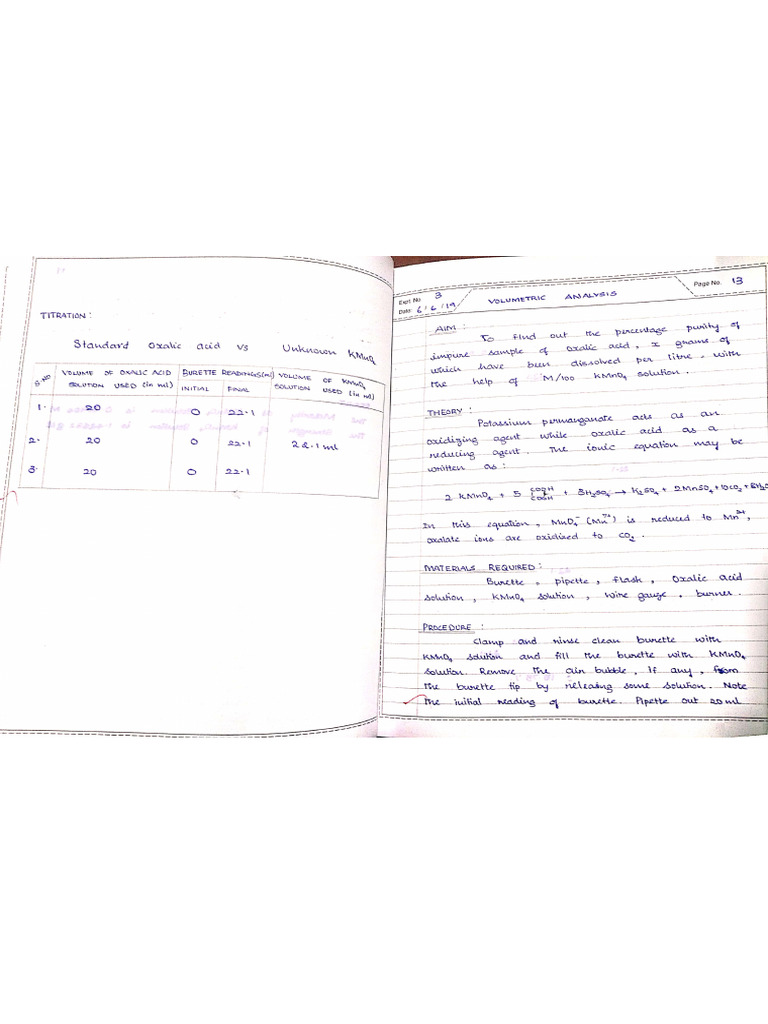 TITRATION :
Standard Oxalic acid vs Unknown KMnO4
S.NO VOLUME OF OXALIC ACID SOLUTION USED (in ml) BURETTE READINGS(ml) INITIAL FINAL VOLUME OF KMnO4 SOLUTION USED (in ml)
1. 20 0 22.1
2. 20 0 22.1 22.1 ml
3. 20 0 22.1
Expt. No. 3
Date 6/6/19
VOLUMETRIC ANALYSIS
Page No. 13
AIM :
To find out the percentage purity of
impure sample of oxalic acid, x grams of
which have been dissolved per litre. with
the help of M/100 KMnO4 solution.
THEORY :
Potassium permanganate acts as an
oxidizing agent while oxalic acid as a
reducing agent. The ionic equation may be
written as :
2 KMnO4 + 5 COOH COOH + 3H2SO4 → K2SO4 + 2MnSO4 + 10CO2 + 8H2O
In this equation, MnO4⁻ (Mn⁷⁺) is reduced to Mn²⁺,
oxalate ions are oxidized to CO2.
MATERIALS REQUIRED :
Burette, pipette, flash, Oxalic acid
solution, KMnO4 solution, wire gauge, burner.
PROCEDURE :
Clamp and rinse clean burette with
KMnO4 solution and fill the burette with KMnO4
solution. Remove the air bubble, if any, from
the burette tip by releasing some solution. Note
the initial reading of burette. Pipette out 20 ml